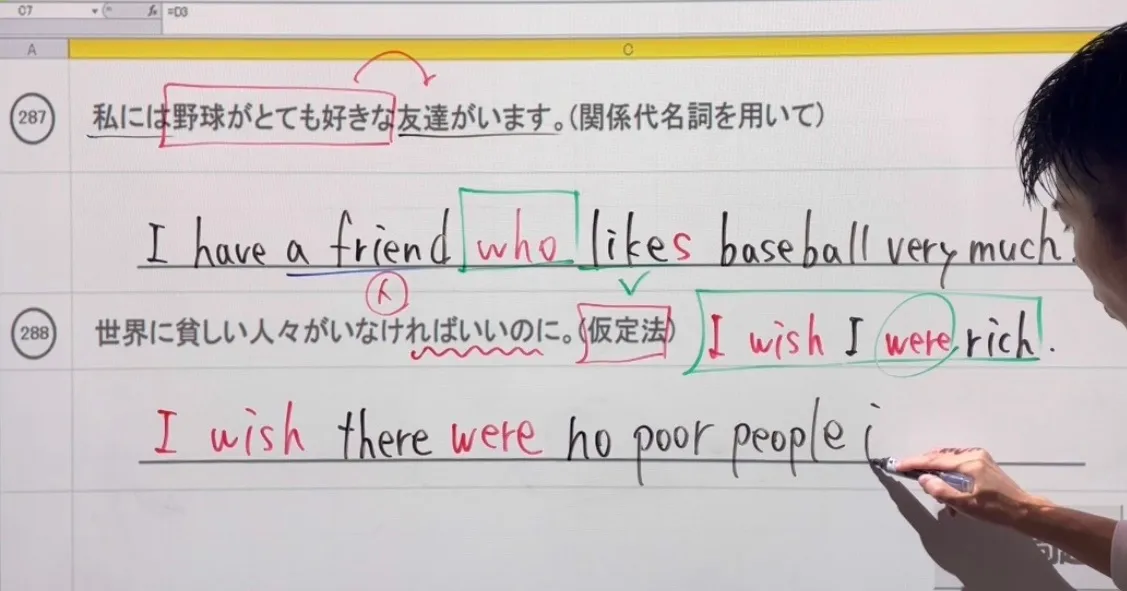 C7 fx =D3
A C
287 私には野球がとても好きな友達がいます。(関係代名詞を用いて)
I have a friend who likes baseball very much.
人
288 世界に貧しい人々がいなければいいのに。(仮定法) I wish I were rich.
I wish there were no poor people i